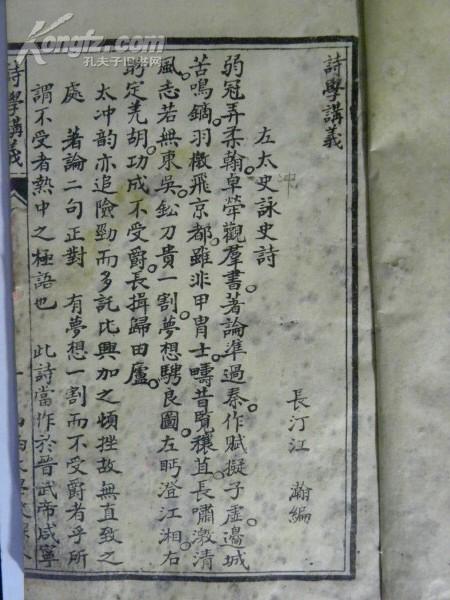 Kongfz.com
孔夫子旧书网
詩學講義
長汀江 瀚編
左太史詠史詩
冲
弱冠弄柔翰卓犖觀羣書著論準過秦作賦擬子虛邊城
苦鳴鏑羽檄飛京都雖非甲冑士疇昔覽穰苴長嘯激清
風志若無東吳鉛刀貴一割夢想騁良圖左眄澄江湘右
盼定羌胡功成不受爵長揖歸田廬
太冲韵亦追險勁而多託比興加之頓挫故無直致之
處 著論二句正對 有夢想一割而不受爵者乎所
謂不受者熱中之極語也 此詩當作於晉武帝咸寧
詩學講義
一